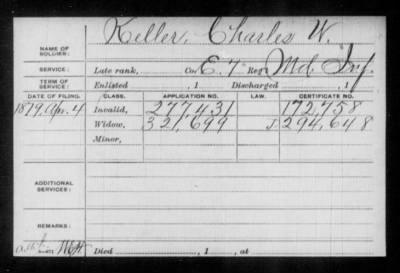 NAME OF SOLDIER: Keller, Charles W.
SERVICE: Late rank, Co. E. 7" Reg't Md. Inf.
TERM OF SERVICE: Enlisted , 1 Discharged , 1
DATE OF FILING. CLASS. APPLICATION NO. LAW. CERTIFICATE NO.
1879, Apr. 4 Invalid, 277,431 172,758
Widow, 321,699 J 294,648
Minor,
ADDITIONAL SERVICES:
REMARKS:
Died , 1 , at